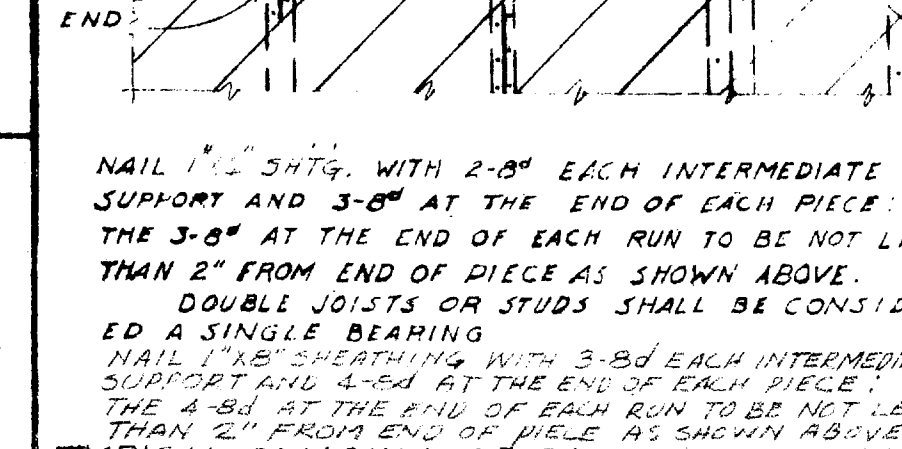 END
NAIL SHTG. WITH 2-8d EACH INTERMEDIATE
SUPPORT AND 3-8d AT THE END OF EACH PIECE:
THE 3-8d AT THE END OF EACH RUN TO BE NOT
THAN 2" FROM END OF PIECE AS SHOWN ABOVE.
DOUBLE JOISTS OR STUDS SHALL BE CONSID
ED A SINGLE BEARING
NAIL 1"X8" SHEATHING WITH 3-8d EACH INTERMEDI
SUPPORT AND 4-8d AT THE END OF EACH PIECE:
THE 4-8d AT THE END OF EACH RUN TO BE NOT LE
THAN 2" FROM END OF PIECE AS SHOWN ABOVE